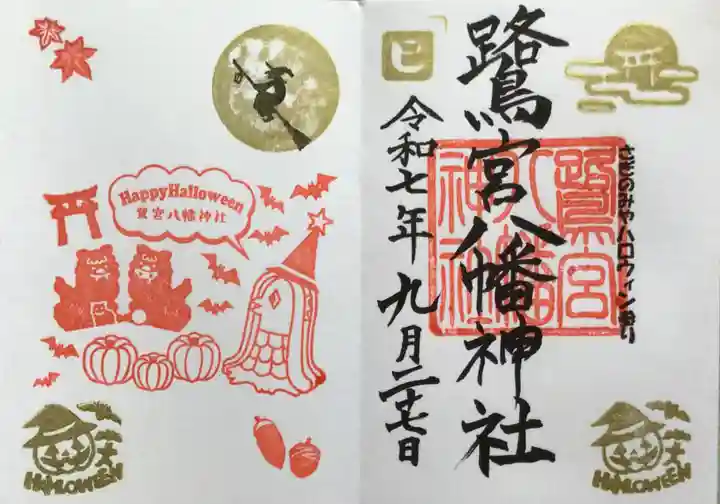 HappyHalloween
鷺宮八幡神社
笑
HALLOWEEN
巳
鷺宮八幡神社
令和七年九月二十七日
鷺宮八幡神社
さぎのみやハロウィン参り
笑
HALLOWEEN